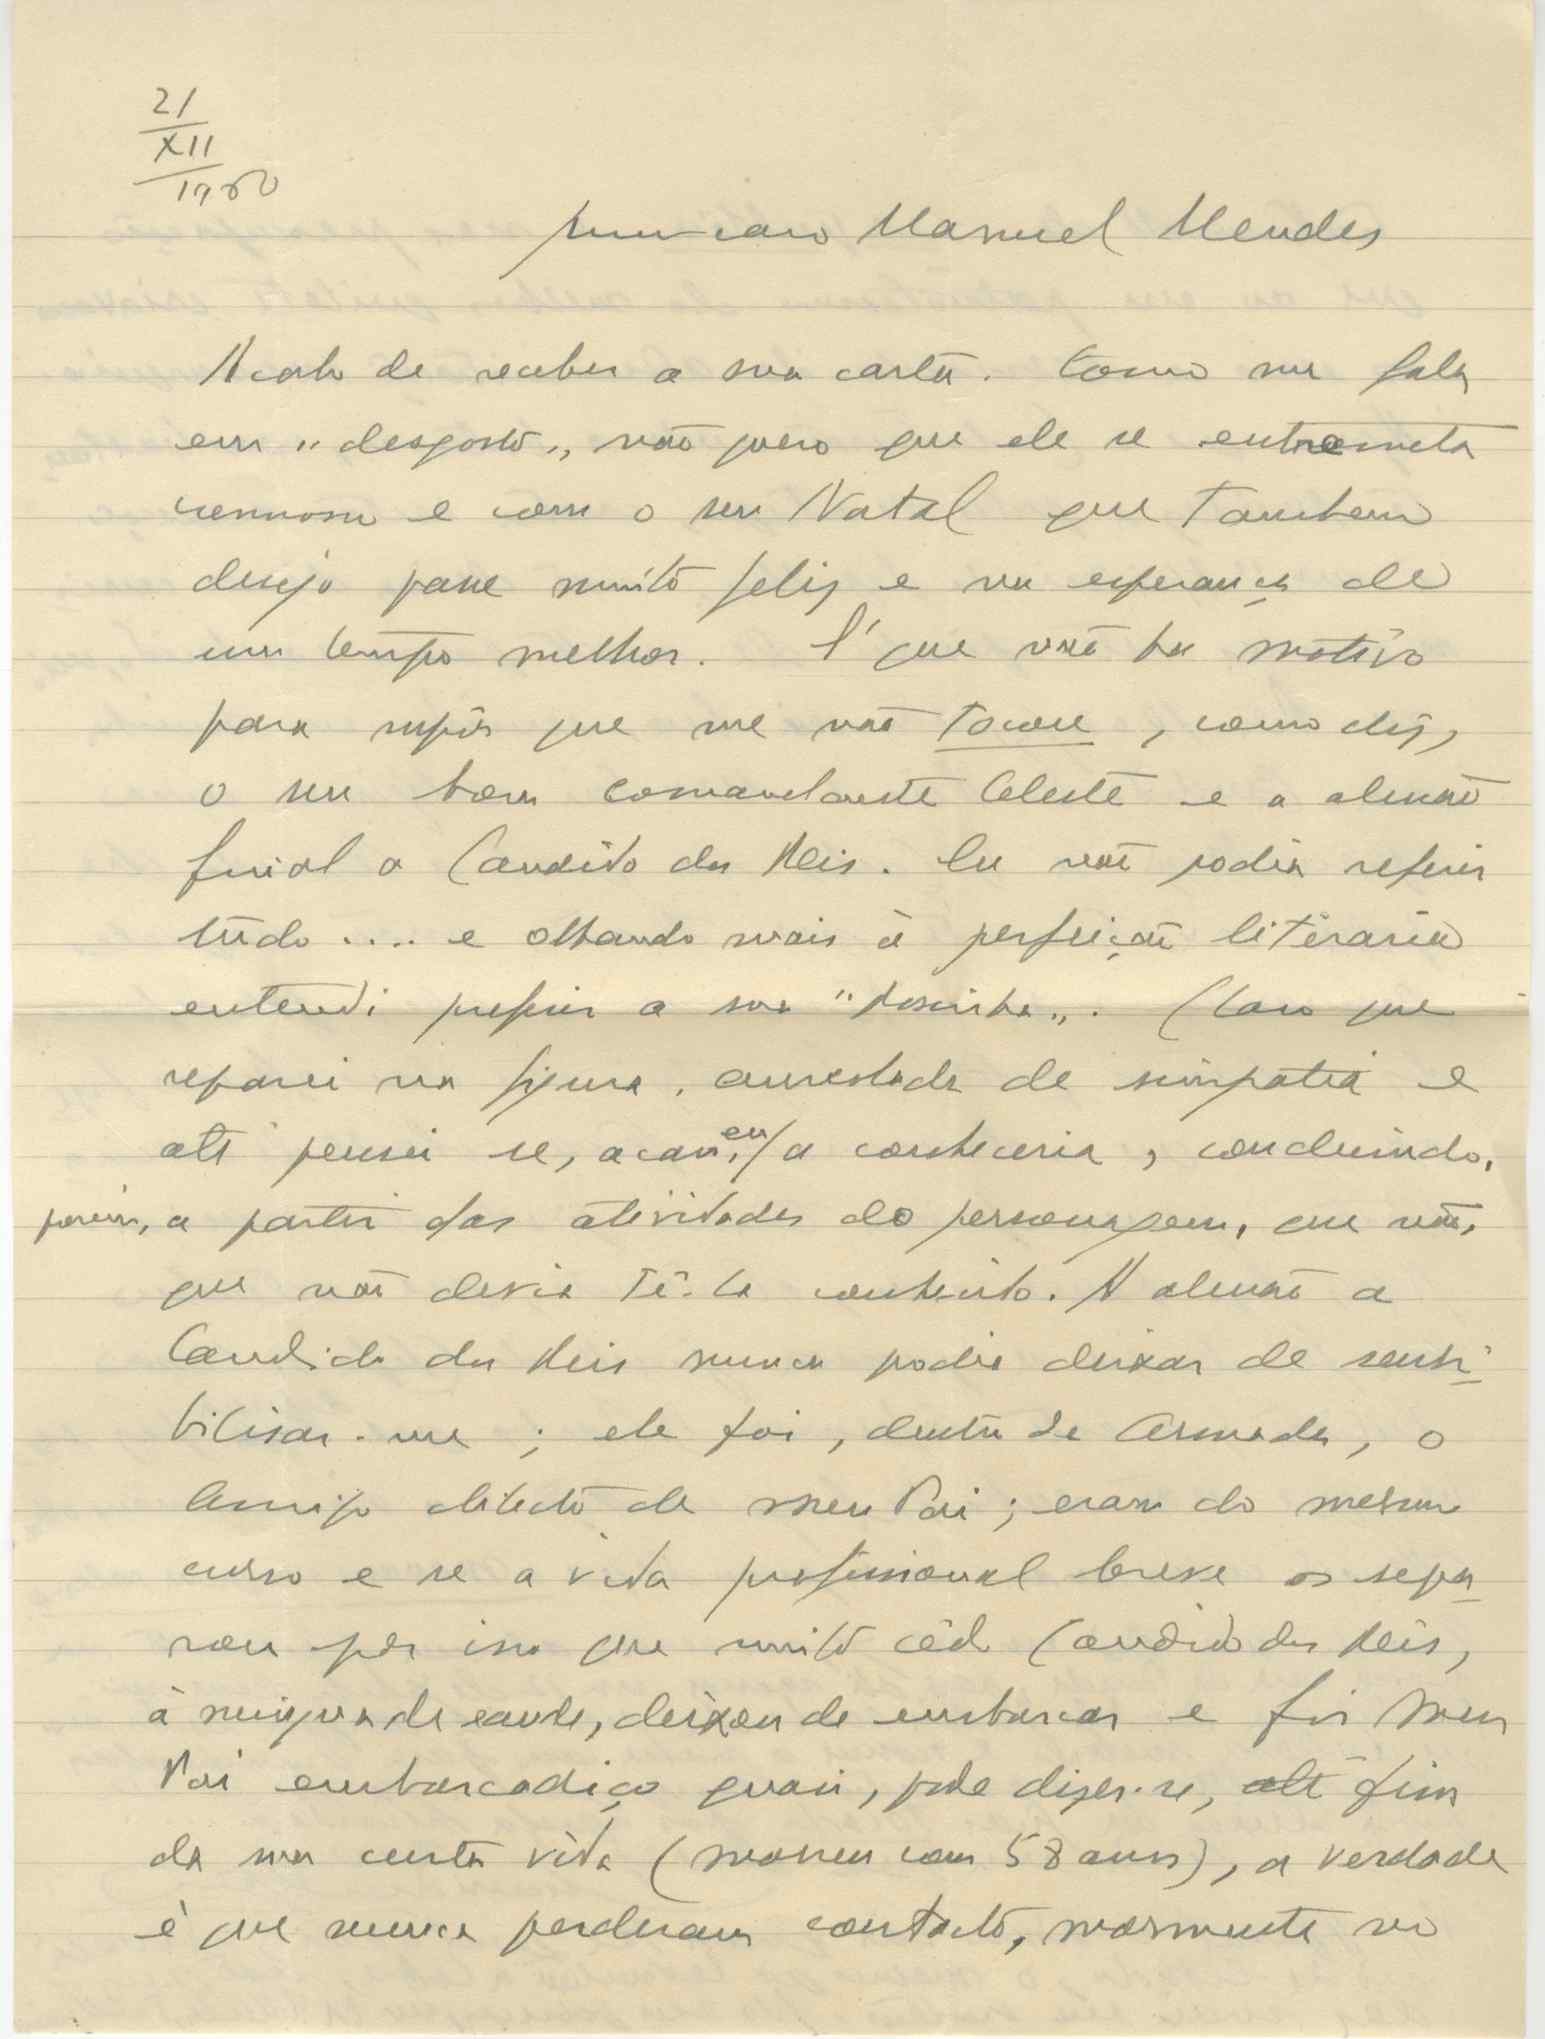 21
XII
1960
meu caro Manuel Mendes
Acabo de receber a sua carta. Como me fala
em "desgosto", não quero que ele se entremeta
connosco e com o seu Natal que tambem
desejo passe muito feliz e na esperança de
um tempo melhor. É que não ha motivo
para supôr que me não tocou, como diz,
o seu bom comandante Celeste e a alusão
final a Candido dos Reis. Eu não podia referir
tudo .... e olhando mais à perfeição literaria
entendi preferir a sua "Rosinha". Claro que
reparei na figura, aureolada de simpatia e
até pensei se, acaso, eu a conheceria, concluindo,
porém, a partir das atividades do personagem, que não,
que não devia tê-la conhecido. A alusão a
Candido dos Reis nunca podia deixar de sensi-
bilisar-me; ele foi, dentro da Armada, o
amigo dilecto de meu Pai; eram do mesmo
curso e se a vida profissional breve os sepa-
rou por isso que muito cêdo Candido dos Reis,
à mingua de saude, deixou de embarcar e foi meu
Pai embarcadiço quasi, pode dizer-se, até fim
da sua curta vida (morreu com 58 anos), a verdade
é que nunca perderam contacto, mormente no